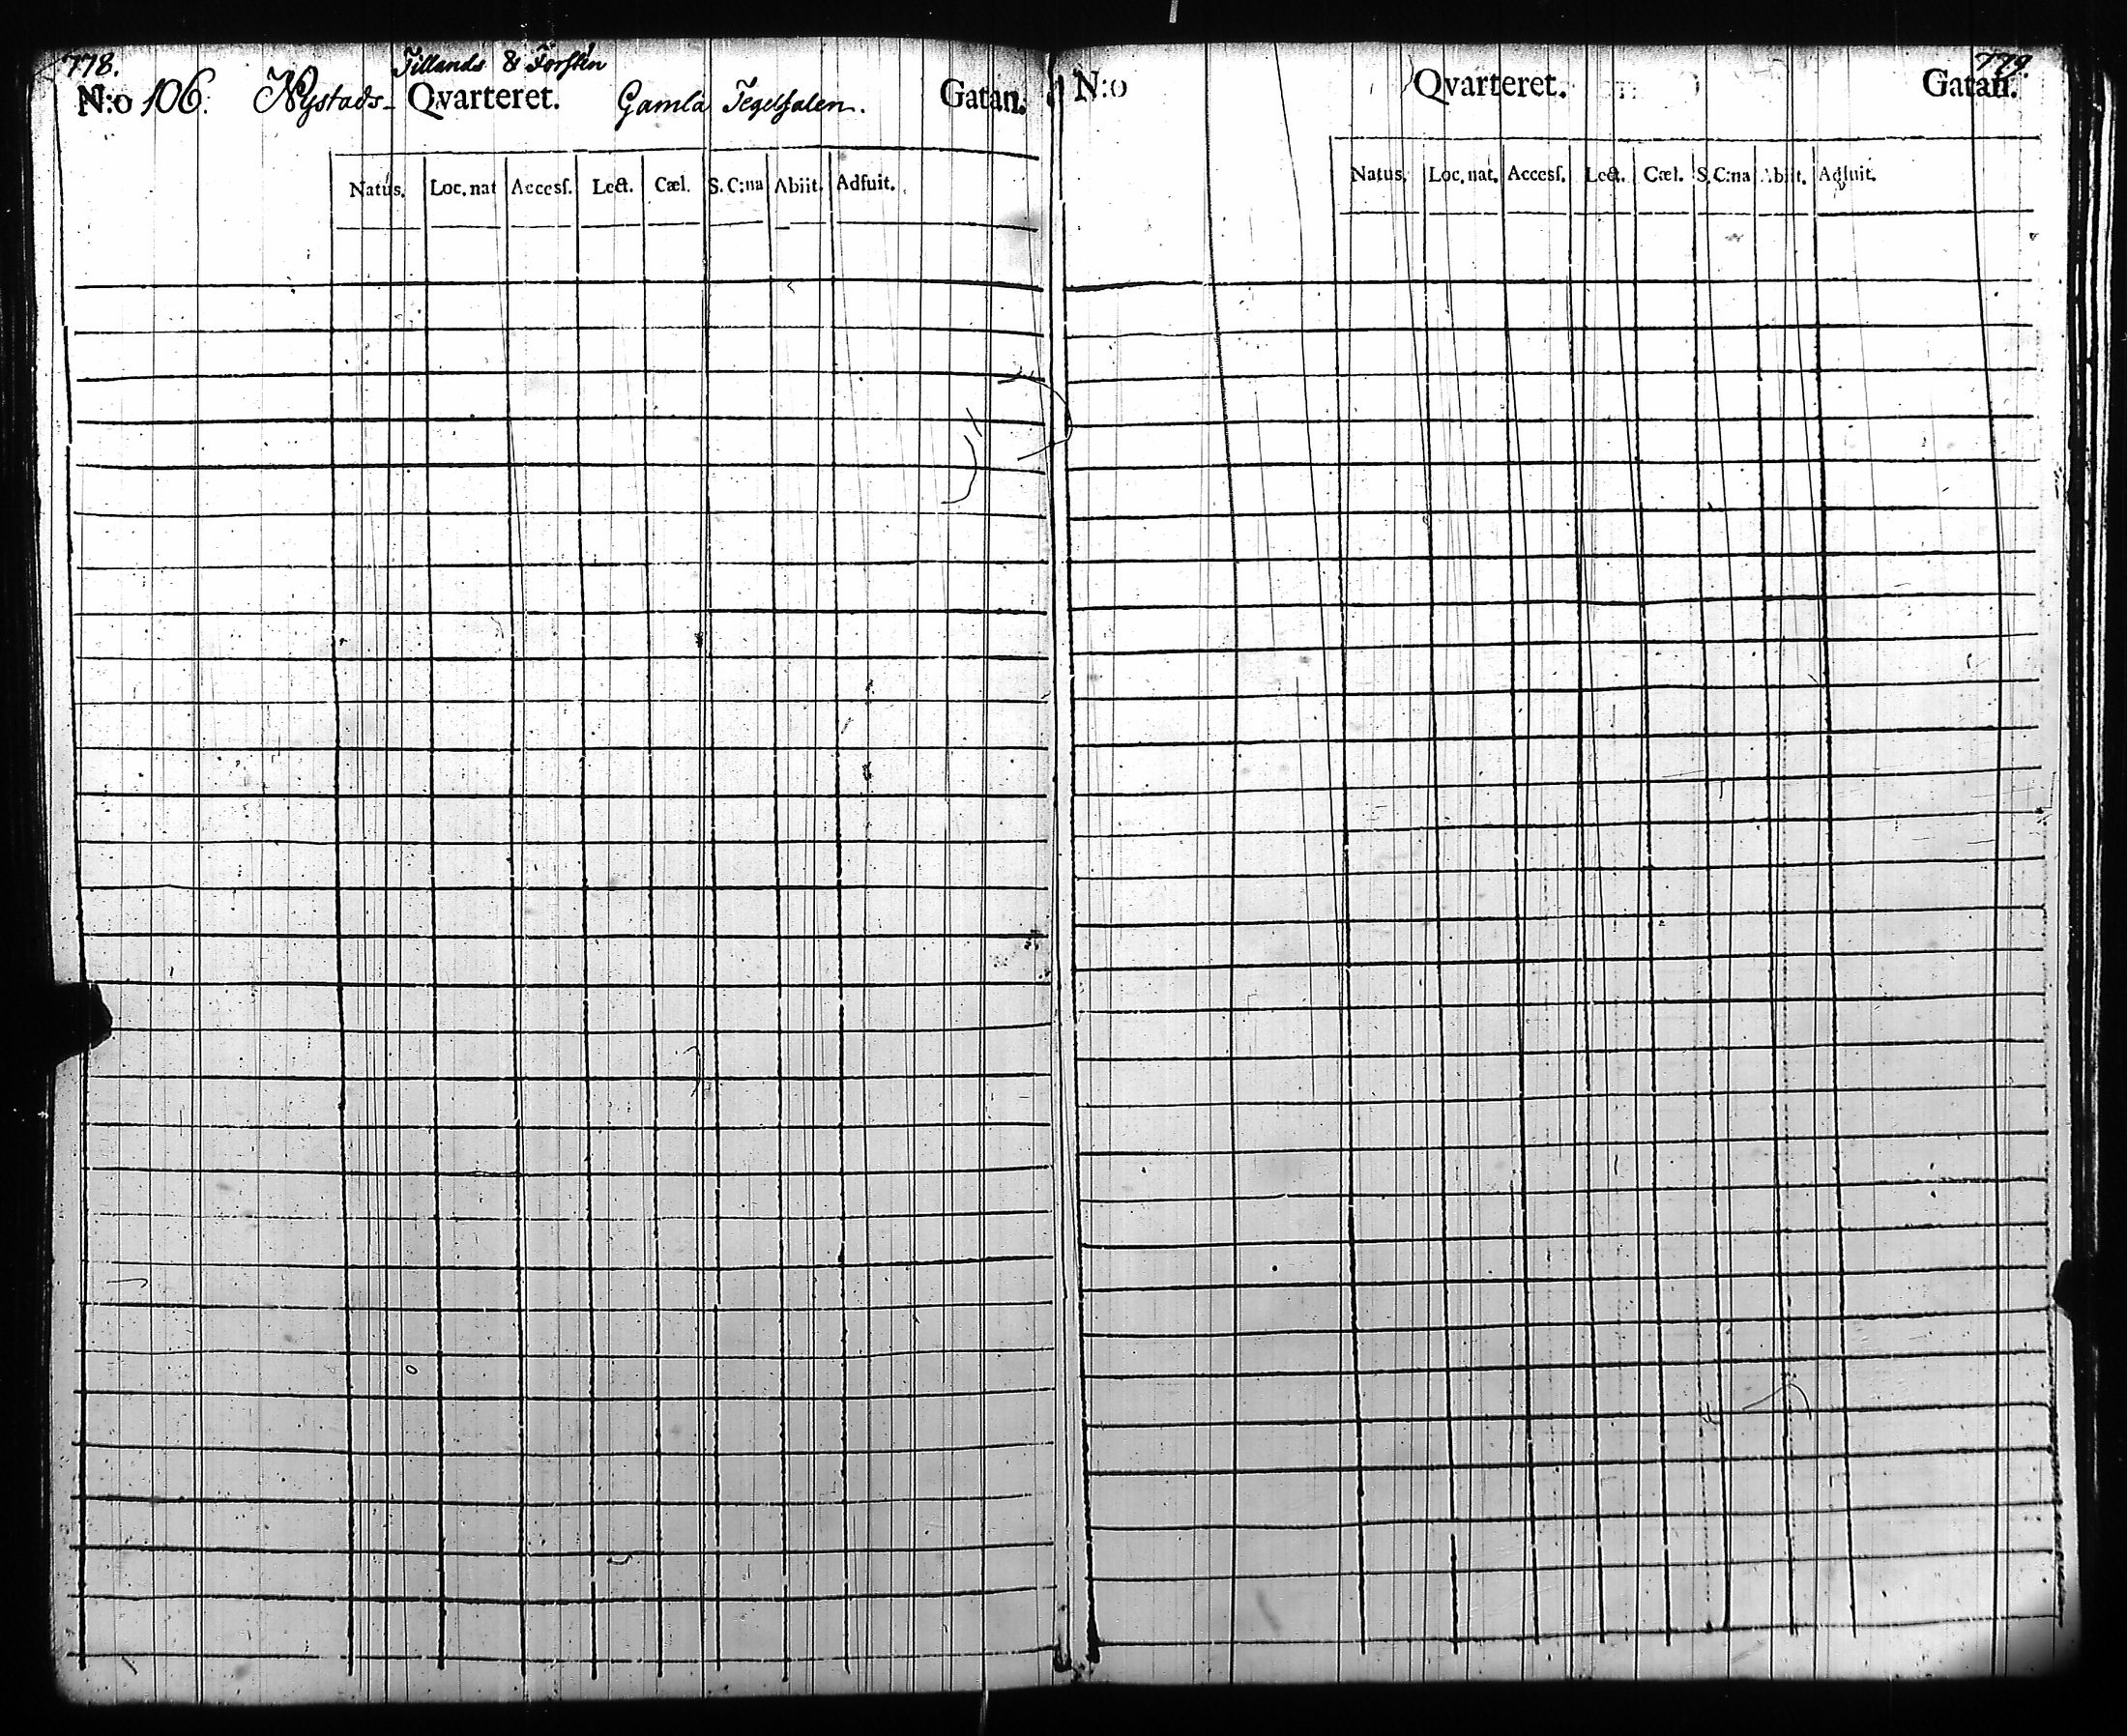 778.
Tillands & Forssten
N:o 106. Nystads- Qvarteret. Gamla Gatan.
Natus. Loc. nat Accesſ. Lect. Cæl. S. C:na Abiit. Adfuit.
779.
N:o Qvarteret. Gatan.
Natus. Loc. nat. Accesſ. Lect. Cæl. S. C:na Abiit. Adfuit.